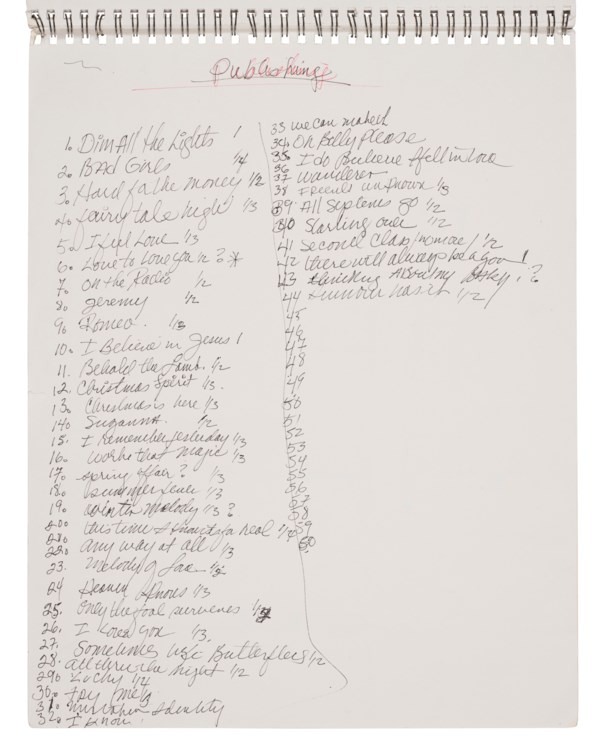 Publishing
1. Dim All the Lights 1
2. Bad Girls 1/4
3. Hard for the money 1/2
4. fairy tale high 1/3
5. I feel Love 1/3
6. Love to Love you ? *
7. On the Radio 1/2
8. Jeremy 1/2
9. Romeo. 1/3
10. I Believe in Jesus 1
11. Behold the Lamb. 1/2
12 Christmas Spirit 1/3.
13. Christmas is here 1/3
14. Suzanna. 1/2
15. I Remember yesterday 1/3
16. Workin that magic 1/3
17. spring affair ? 1/3
18. summer fever 1/3
19. winter melody 1/3 ?
20. this time I know its for real 1/4
22. any way at all 1/3
23. Melody of Love 1/3
24 Heaven knows 1/3
25. only the fool survives
26. I Love you 1/3.
27. Sometimes like Butterflies 1/2
28. all thru the night 1/2
29. Lucky 1/4
30.
31. identity
32. I know
33 we can make it
34. Oh Billy Please
35. I do Believe I fell in Love
36
37 wanderer
38 unknown 1/3
39 All Systems go 1/2
40 Starting over 1/2
41 Second Class woman / 1/2
42 there will always be a you 1
43 thinking About my Baby. ?
44 rumour has it 1/2
45
46
47
48
49
50
51
52
53
54
55
56
57
58
59
60